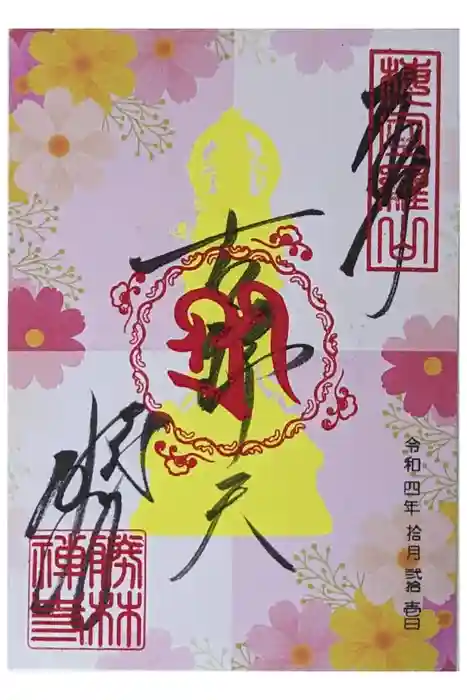 奉拝
吉祥天
令和四年 拾月 弐拾壱日
勝林寺
勝林
禅寺